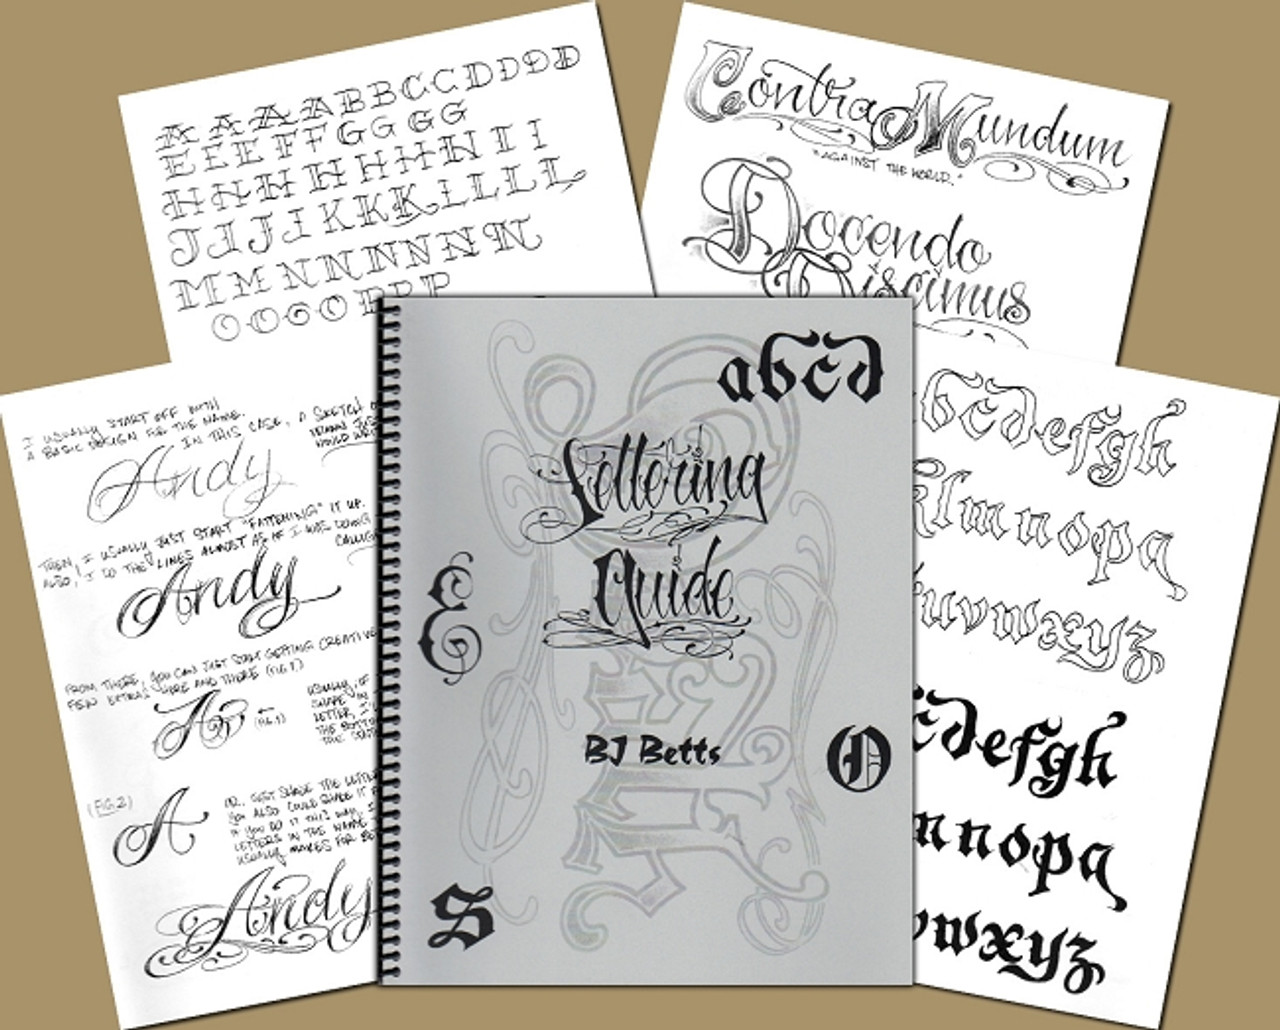 A A A A B B C C D D D D
E E E E F F G G G G
H H H H H H H H I I I
J J J I K K K L L L L L
M M N N N N N N
O O O O P P P
Contra Mundum
"AGAINST THE WORLD."
Docendo
Discimus
I USUALLY START OFF WITH
A BASIC DESIGN FOR THE NAME.
IN THIS CASE, A SKETCH
WOULD
Andy
THEN, I USUALLY JUST START "FATTENING" IT UP.
ALSO, I DO THE LINES ALMOST AS IF I WAS DOING
CALLIG
Andy
FROM THERE, YOU CAN JUST START GETTING CREATIVE
FEW EXTRAS HERE AND THERE (FIG.1)
A
(FIG.1)
USUALLY, IF
SHAPE
LETTER,
THE BOTT
THE
(FIG.2)
A
OR, JUST SHADE THE LETTER
YOU ALSO COULD SHADE IT
IF YOU DO IT THIS WAY,
LETTERS IN THE NAME
USUALLY MAKES FOR BE
Andy
abcd
Lettering
Guide
&
BJ Betts
O
S
bcdefgh
klmnopq
uvwxyz
cdefgh
mnopq
vwxyz